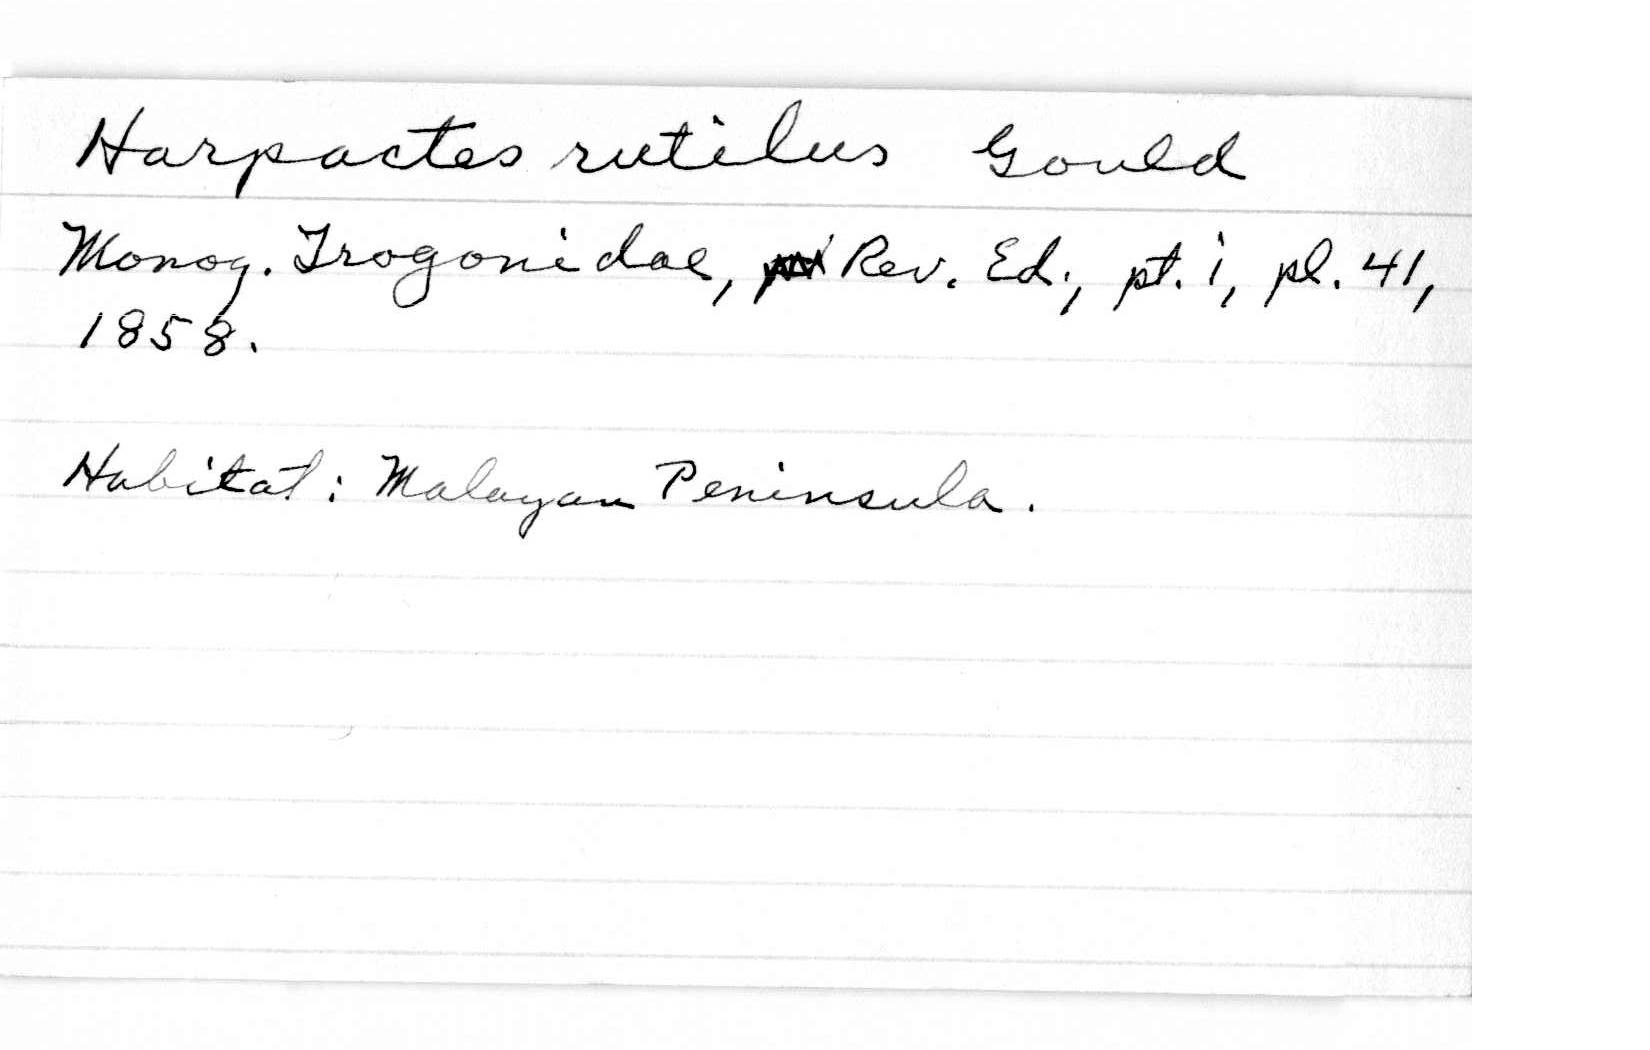 Harpactes rutilus Gould
Monog. Trogonidae, Rev. Ed., pt. i, pl. 41,
1858.
Habitat: Malayan Peninsula.